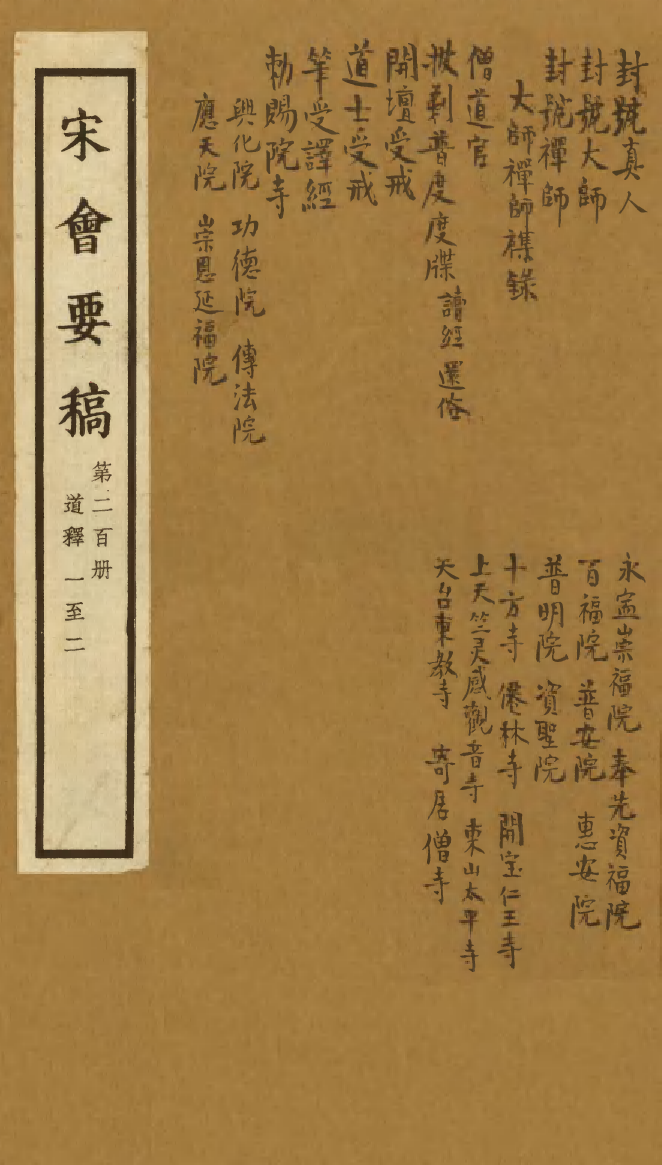 封號真人
封號大師
封號禪師
大師禪師襍錄
僧道官
披剃普度度牒 讀經 還俗
開壇受戒
道士受戒
筆受譯經
勅賜院寺
興化院 功德院 傳法院
應天院 崇恩延福院
永定崇福院 奉先資福院
百福院 普安院 惠安院
普明院 資聖院
十方寺 僊林寺 開宝仁王寺
上天竺灵感觀音寺 東山太平寺
天台東教寺 寄居僧寺
宋會要稿
第二百册
道釋 一至二